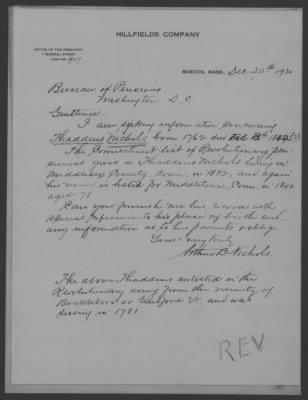 HILLFIELDS COMPANY
OFFICE OF THE PRESIDENT
1 FEDERAL STREET
BOSTON, MASS. Dec. 20th 19
Bureau of Pensions
Washington D.C.
Gentlemen:
I am seeking information concerning
Thaddeus Nichols born 1762 died Feb 8th
The Connecticut list of Revolutionary pen-
sioners gives a Thaddeus Nichols living in
Middlesex County, Conn. in 1832, and again
his name is listed for Middletown, Conn. in 1840
aged 78
Can you furnish me his record with
special reference to his place of birth and
any information as to his parents & oblige
Yours very truly
Arthur B Nichols
The above Thaddeus enlisted in the
Revolutionary army from the vicinity of
Brattleboro or Guilford Vt. and was
serving in 1781
REV